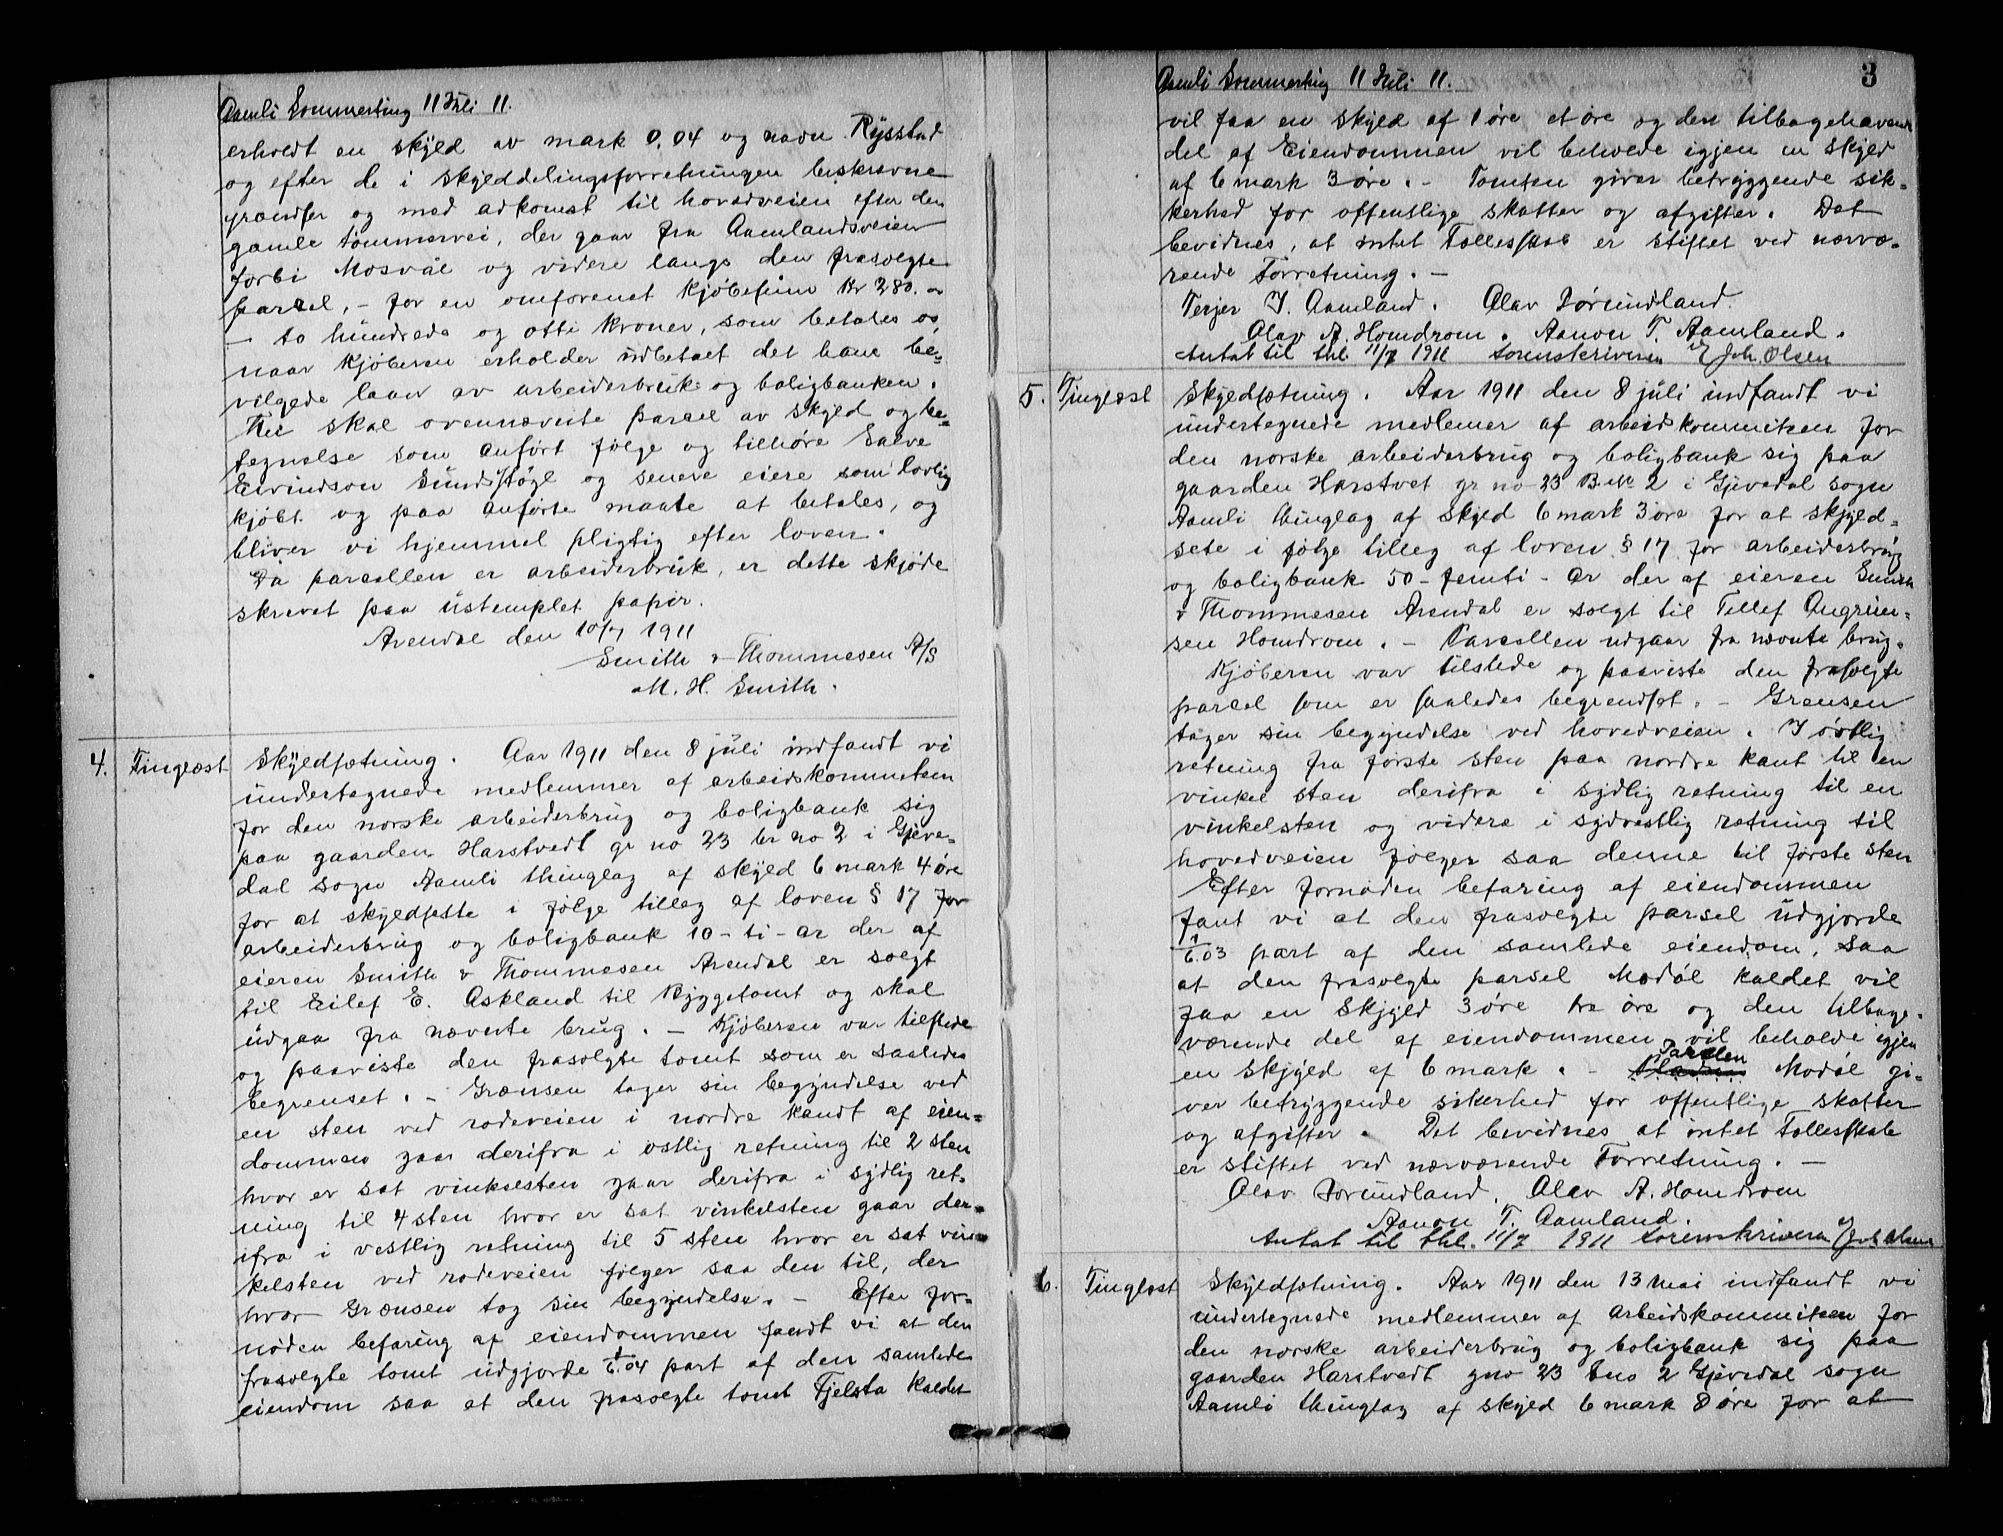 Aamli Sommerting 11 Juli 11.
erholdt en skyld av mark 0,04 og navn Rysstad
og efter de i skylddelingsforretningen beskrevne
grændser og med adkomst til hovedveien efter den
gamle tømmervei, der gaar fra Aamlandsveien
forbi Mosvål og videre langs den frasolgte
parcel, - for en omforenet kjøbesum Kr 280.-
- to hundrede og otti kroner, som betales os
naar kjøberen erholder udbetalt det ham be-
vilgede laan av arbeiderbruk- og boligbanken.
Thi skal ovennævnte parcel av skyld og be-
tegnelse som anført følge og tilhøre Salve
Eivindson Sundsstøgl og senere eiere som lovlig
kjøbt og paa anførte maate at betales, og
bliver vi hjemmel pligtig efter loven.
Da parcellen er arbeiderbruk, er dette skjøde
skrevet paa ustemplet papir.
Arendal den 10/7 1911
Smith & Thommesen A/S
M. H. Smith.
4. Tinglæst Skyldsætning. Aar 1911 den 8 juli indfandt vi
undertegnede medlemmer af arbeidskommitsen
for den norske arbeiderbrug og boligbank sig
paa gaarden Harstvedt gr no 23 br no 2 i Gjeve-
dal sogn Aamli thinglag af skyld 6 mark 4 øre
for at skyldsette i følge tilleg af loven § 17 for
arbeiderbrug og boligbank 10 - ti - ar der af
eieren Smith & Thommesen Arendal er solgt
til Eilef E. Askland til Byggetomt og skal
udgaa fra nævnte brug. - Kjøberen var tilstede
og paaviste den frasolgte tomt som er saaledes
begrenset. - Grænsen tager sin begyndelse ved
en sten ved rodeveien i nordre kandt af eien-
dommen gaar derifra i østlig retning til 2 sten
hvor er sat vinkelsten gaar derifra i sydlig ret-
ning til 4 sten hvor er sat vinkelsten gaar der-
ifra i vestlig retning til 5 sten hvor er sat vin-
kelsten ved rodeveien følger saa den til, der
hvor Grænsen tog sin begyndelse. - Efter for-
nøden befaring af eiendommen fandt vi at den
frasolgte tomt udgjorde 1/6.04 part af den samlede
eiendom saa at den frasolgte tomt Fjelsta kaldet
Aamli Sommerting 11 Juli 11. 3
vil faa en skyld af 1 øre et øre og den tilbagehavende
del af Eiendommen vil beholde igjen en skyld
af 6 mark 3 øre. - Tomten giver betryggende sik-
kerhed for offentlige skatter og afgifter. Det
bevidnes, at intet Fællesskab er stiftet ved nærvæ-
rende Forretning. -
Terjer T. Aamland. Olav Jørundland
Olav A. Homdrom. Aanon T. Aamland.
Antat til thl. 11/7 1911 Sorenskriveren Joh. Olsen
5. Tinglæst Skyldsætning. Aar 1911 den 8 juli indfandt vi
undertegnede medlemer af arbeidskommitsen for
den norske arbeiderbrug og boligbank sig paa
gaarden Harstvet gr no 23 B. no 2 i Gjevedal sogn
Aamli thinglag af Skyld 6 mark 3 øre for at skyld-
sete i følge tilleg af loven § 17 for arbeiderbrug
og boligbank 50 - femti - ar der af eieren Smith
& Thommesen Arendal er solgt til Tellef Augrim-
sen Homdrom. - Parcellen udgaar fra nævnte brug.
Kjøberen var tilstede og paaviste den frasolgte
parcel som er saaledes begrendset. - Grensen
tager sin begyndelse ved hovedveien. I østlig
retning fra første sten paa nordre kant til en
vinkel sten derifra i sydlig retning til en
vinkelsten og videre i sydvestlig retning til
hovedveien følger saa denne til første sten
Efter fornøden befaring af eiendommen
fant vi at den frasolgte parsel udgjorde
1/6.03 part af den samlede eiendom, saa
at den frasolgte parsel Modøl kaldet vil
faa en Skjyld 3 øre tre øre og den tilbage-
værende del af eiendommen vil beholde igjen
en skjyld af 6 mark. - Parcelen Modøl gi-
ver betryggende sikerhed for offentlige skatter
og afgifter. Det bevidnes at intet Fællesskab
er stiftet ved nærværende Forretning. -
Olav Jorundland. Olav A. Homdrom
Aanon T. Aamland.
Antat til thl. 11/7 1911 Sorenskriveren Joh Olsen
6. Tinglæst Skyldsætning. Aar 1911 den 13 mai indfandt vi
undertegnede medlemmer af arbeidskommitsen for
den norske arbeiderbrug og boligbank sig paa
gaarden Harstvedt gno 23 bno 2 Gjevedal sogn
Aamli thinglag af skyld 6 mark 8 øre for at